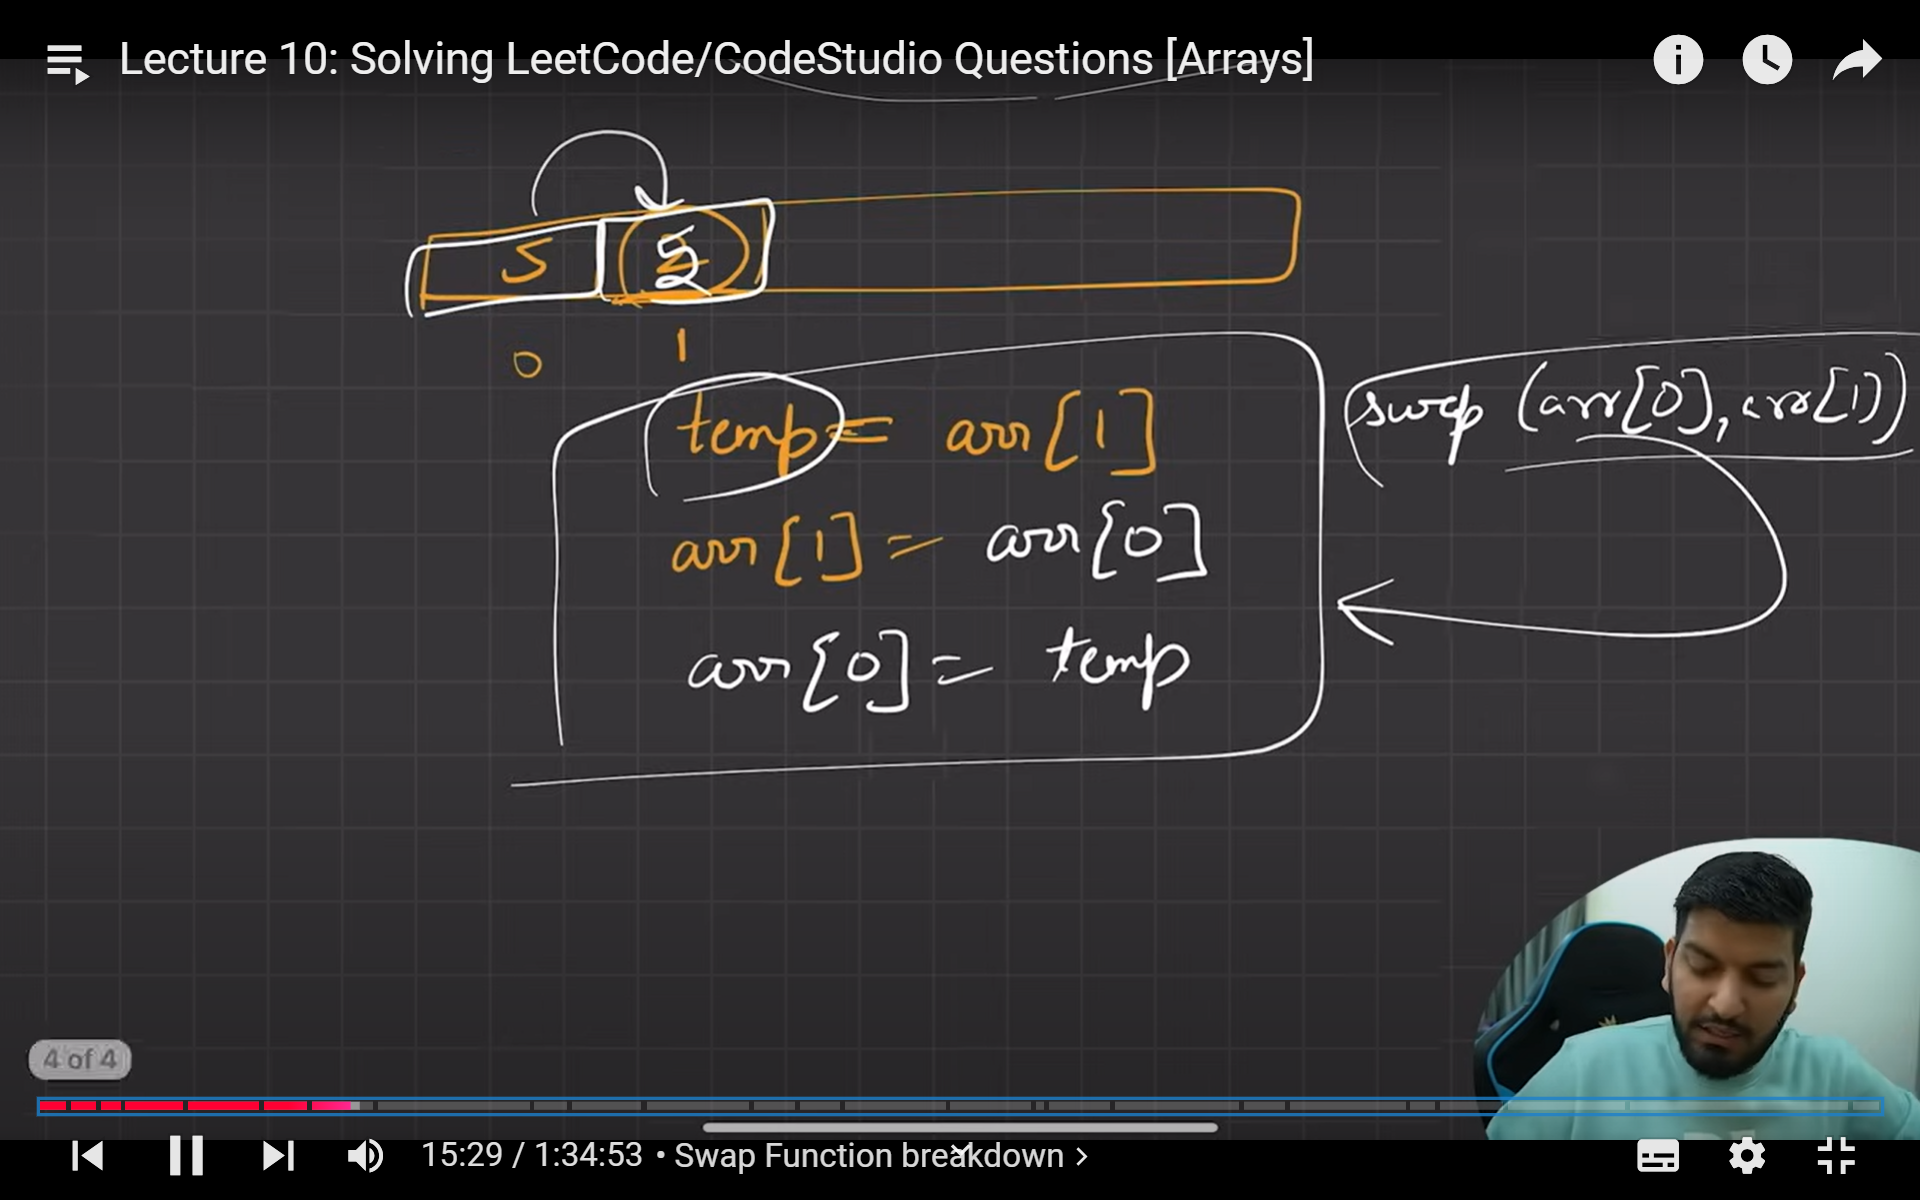 Lecture 10: Solving LeetCode/CodeStudio Questions [Arrays]
5 5
0 1
temp = arr[1]
swap (arr[0], arr[1])
arr[1] = arr[0]
arr[0] = temp
4 of 4
15:29 / 1:34:53 • Swap Function breakdown >